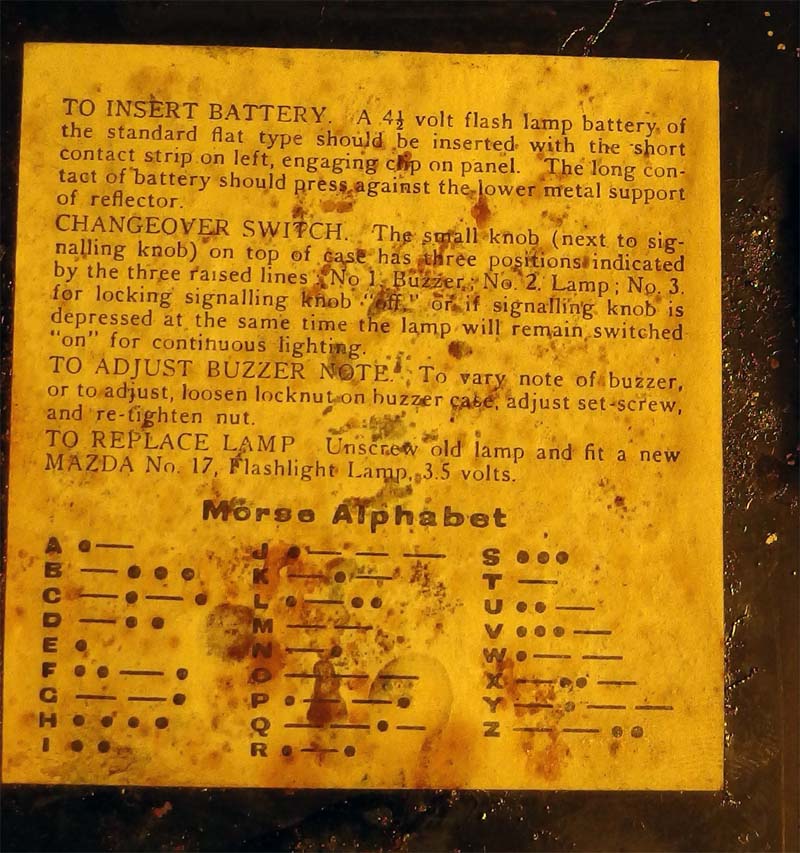 TO INSERT BATTERY. A 4½ volt flash lamp battery of
the standard flat type should be inserted with the short
contact strip on left, engaging clip on panel. The long con-
tact of battery should press against the lower metal support
of reflector.
CHANGEOVER SWITCH. The small knob (next to sig-
nalling knob) on top of case has three positions indicated
by the three raised lines; No 1. Buzzer; No. 2. Lamp; No. 3.
for locking signalling knob "off," or if signalling knob is
depressed at the same time the lamp will remain switched
"on" for continuous lighting.
TO ADJUST BUZZER NOTE. To vary note of buzzer,
or to adjust, loosen locknut on buzzer case, adjust set-screw,
and re-tighten nut.
TO REPLACE LAMP Unscrew old lamp and fit a new
MAZDA No. 17, Flashlight Lamp, 3.5 volts.
Morse Alphabet
A ●—
B —●●●
C —●—●
D —●●
E ●
F ●●—●
G ——●
H ●●●●
I ●●
J ●———
K —●—
L ●—●●
M ——
N —●
O ———
P ●——●
Q ——●—
R ●—●
S ●●●
T —
U ●●—
V ●●●—
W ●——
X —●●—
Y —●——
Z ——●●